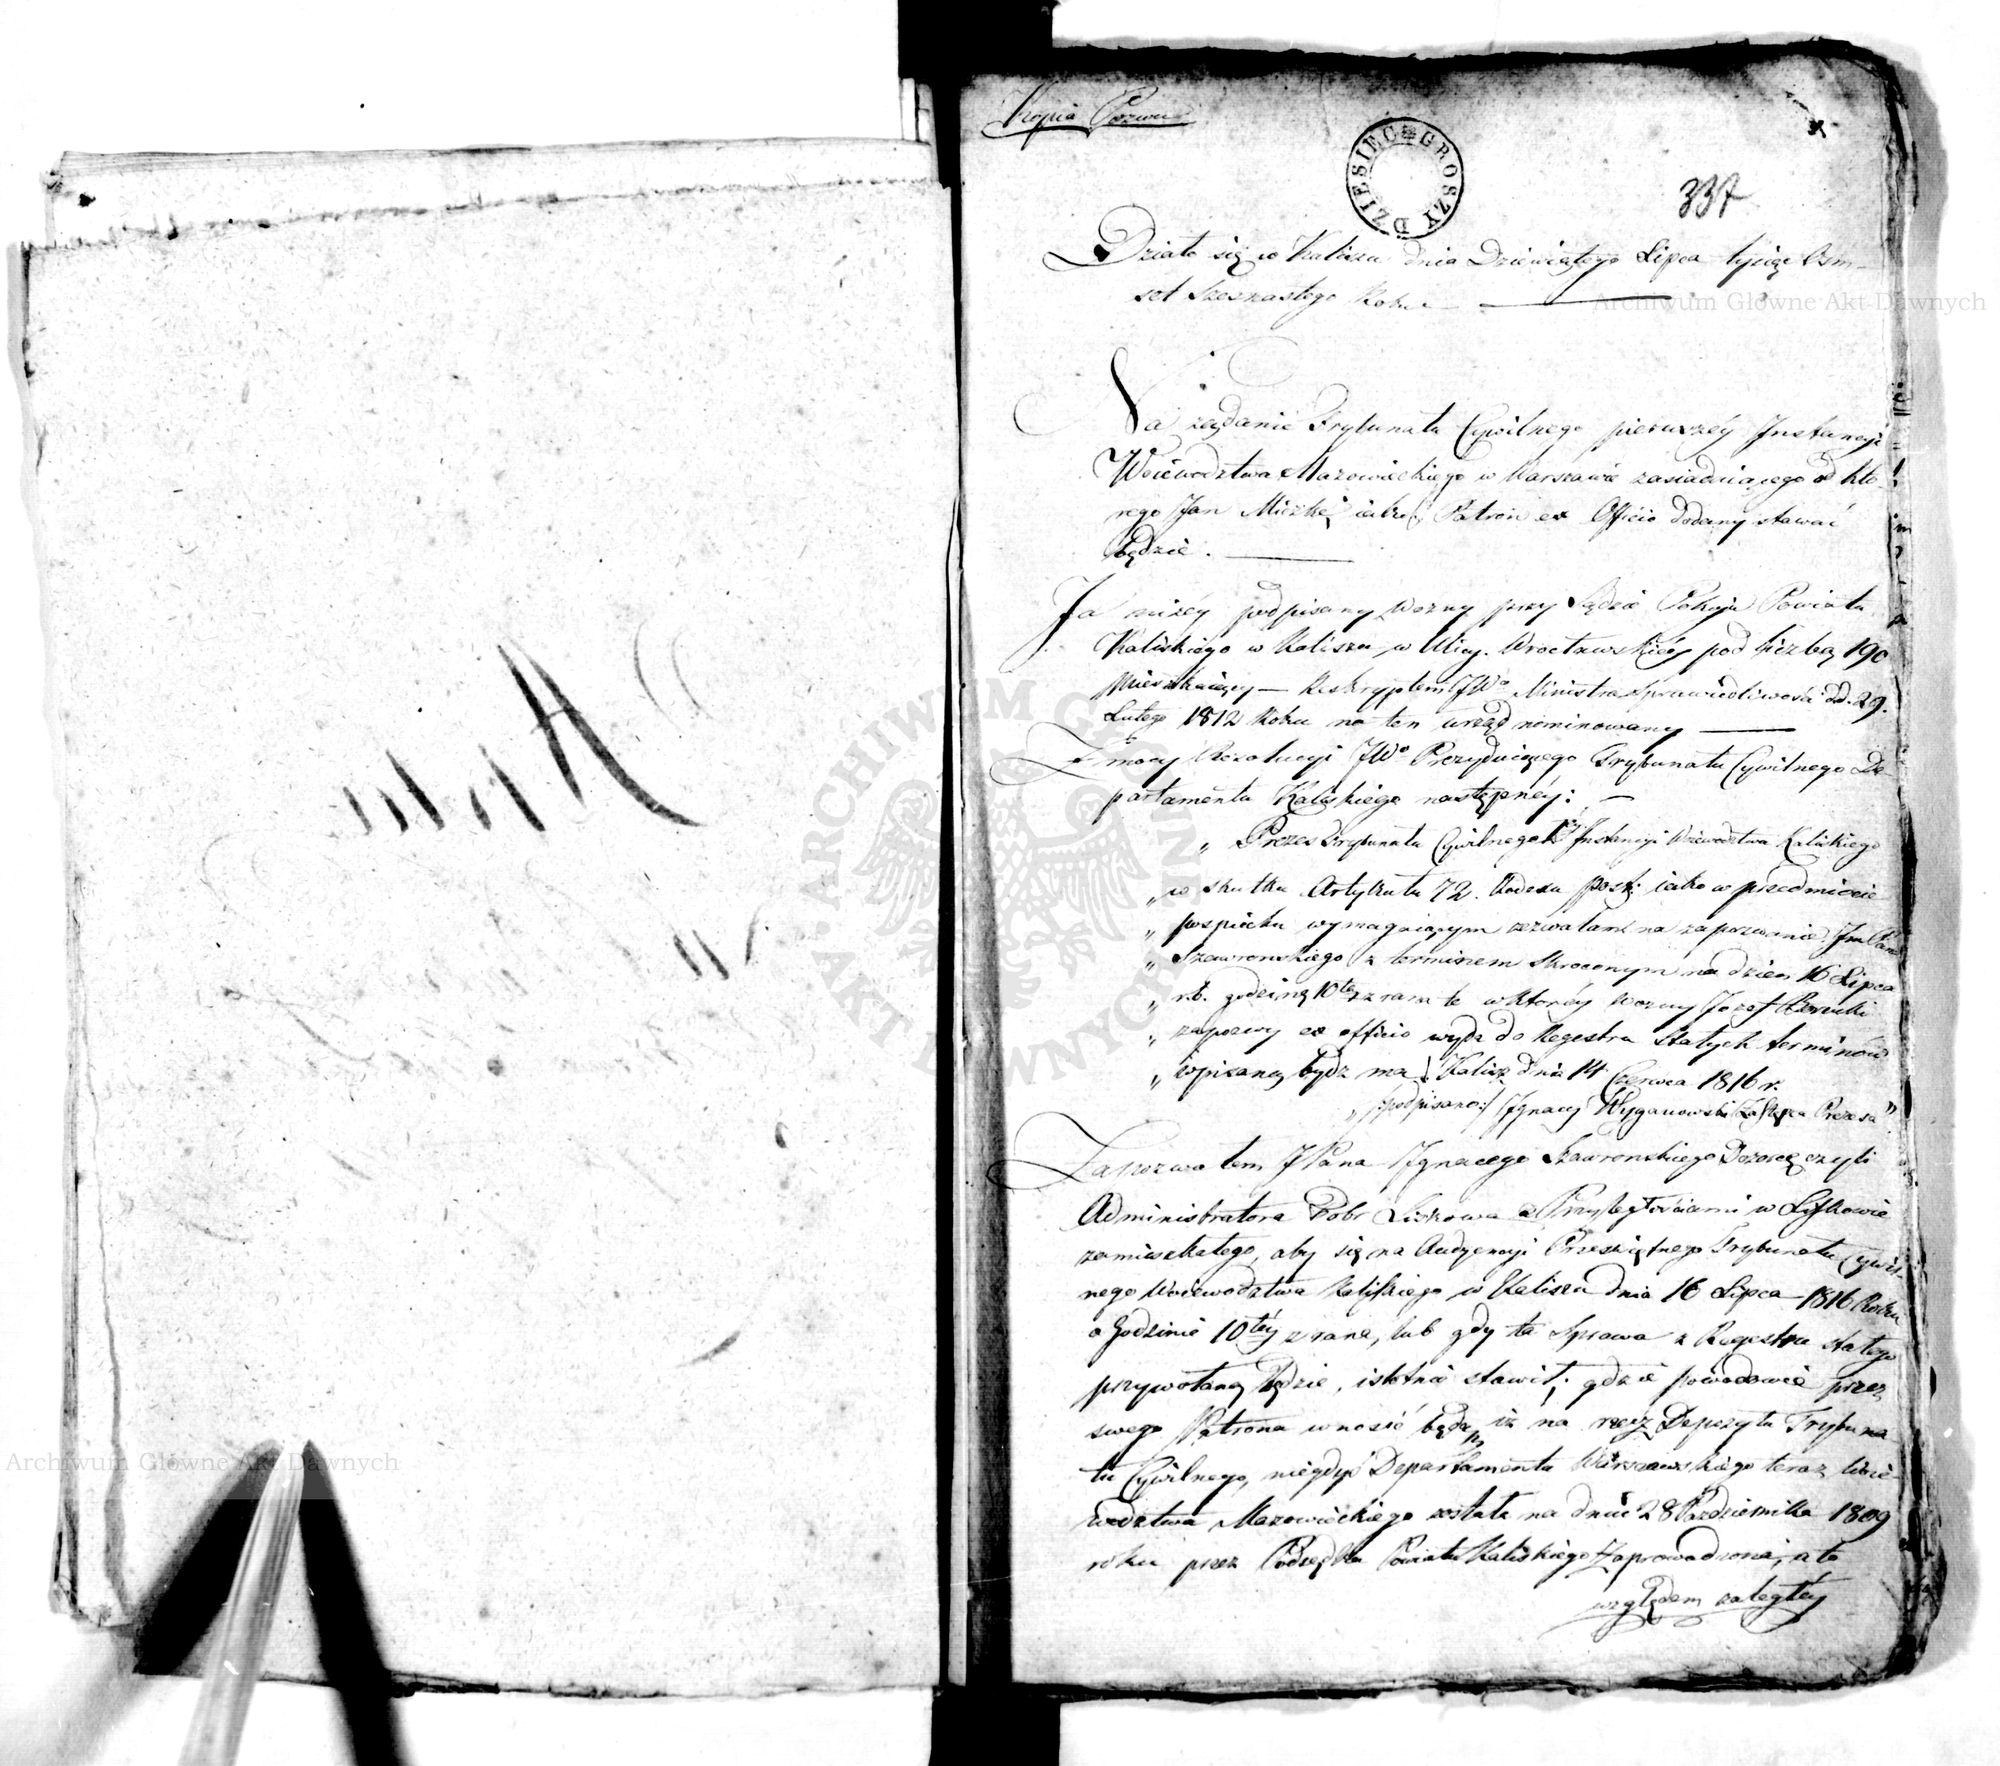 Kopia Pozwu
DZIESIĘC GROSZY
337
Działo się w Kaliszu dnia Dziewiątego Lipca tysiąc Ośm-
set Szesnastego Roku
Na żądanie Trybunału Cywilnego pierwszey Instancyi
Woiewodztwa Mazowieckiego w Warszawie zasiadaiącego od któ-
rego Jan Patron ex Officio dodany stawać
będzie.
Ja niżey podpisany Wozny przy Sądzie Pokoju Powiatu
Kaliskiego w Kaliszu w Ulicy Wrocławskiéy pod liczbą 190
Mieszkaiący — Reskryptem JWo Ministra Sprawiedliwości dd. 29.
Lutego 1812 Roku na ten urząd nominowany
Z mocy Rezolucyi JWo Prezyduiącego Trybunału Cywilnego De-
partamentu Kaliskiego następnéy:
„ Prezes Trybunału Cywilnego Instancyi Woiewodztwa Kaliskiego
„ w skutku Artykułu 72. Kodexu Post: iako w przedmiocie
„ pospiechu wymagaiącym zezwalam na zapozwanie Jm Pana
„ Szawronskiego z terminem skroconym na dzien 16 Lipca
„ r.b. godzinę 10tą z rana w ktoréy Wozny Jozef
„ zapozwy ex officio wyda do Regestru Stałych terminów
„ wpisaną bydz ma. Kalisz dnia 14 Czerwca 1816 r.
„ podpisano:/ Ignacy Wyganowski Zastępca Prezesa"
Zapozwałem JPana Ignacego Szawronskiego Dozorcę czyli
Administratora Dobr Liskowa z Przyległościami w Liskowie
zamieszkałego, aby się na Audyencyi Przeświętnego Trybunału Cywil-
nego Woiewodztwa Kaliskiego w Kaliszu dnia 16 Lipca 1816 Roku
o Godzinie 10téy z rana, lub gdy ta Sprawa z Regestru stałego
przywołaną będzie, istotnie stawił; gdzie powodowie przez
swego Patrona wnosić będą, iż na rzecz Depozytu Trybuna-
łu Cywilnego, niegdyś Departamentu Warszawskiego teraz Woie-
wodztwa Mazowieckiego została na dniu 28 Pazdziernika 1809
roku przez Podsędka Powiatu Kaliskiego Zaprowadzona, a to
względem zaległéy
ARCHIWUM GŁÓWNE AKT DAWNYCH
Archiwum Główne Akt Dawnych
Archiwum Główne Akt Dawnych